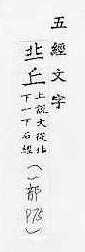 五經文字
丠丘
上說文從北
下一下石經
(一部
P75)